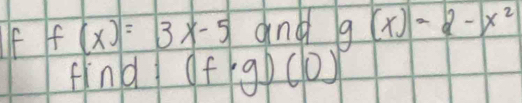 If f(x) = 3x-5 and g(x) = 2-x²
find: (f·g)(0)